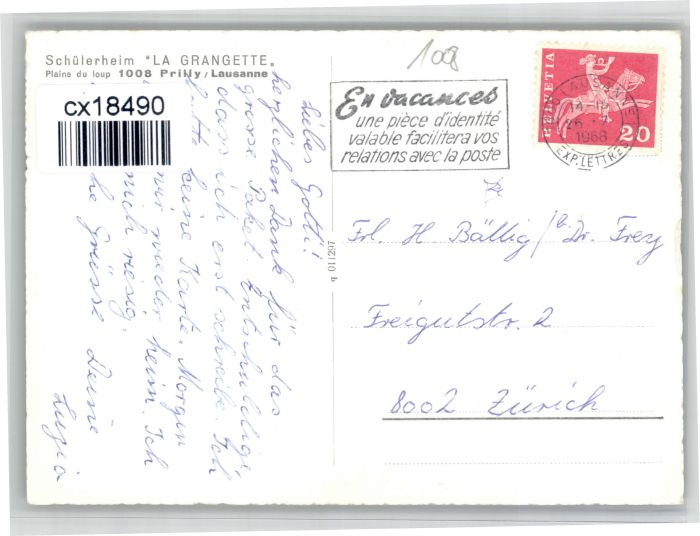 Schülerheim "LA GRANGETTE"
Plaine du loup 1008 Prilly/Lausanne
cx18490
1008
En vacances
une pièce d'identité
valable facilitera vos
relations avec la poste
HELVETIA
20
14-12
1968
EXP. LETTRES
q 011297
Liebes Gotti!
herzlichen Dank für das
grosse Paket. Entschuldige,
dass ich erst schreibe. Ich
hatte keine Karte. Morgen
wir wieder heim. Ich
mich riesig.
he Grüsse Deine
Luzia
Frl. H Bällig / b. Dr. Frey
Freigutstr. 2
8002 Zürich